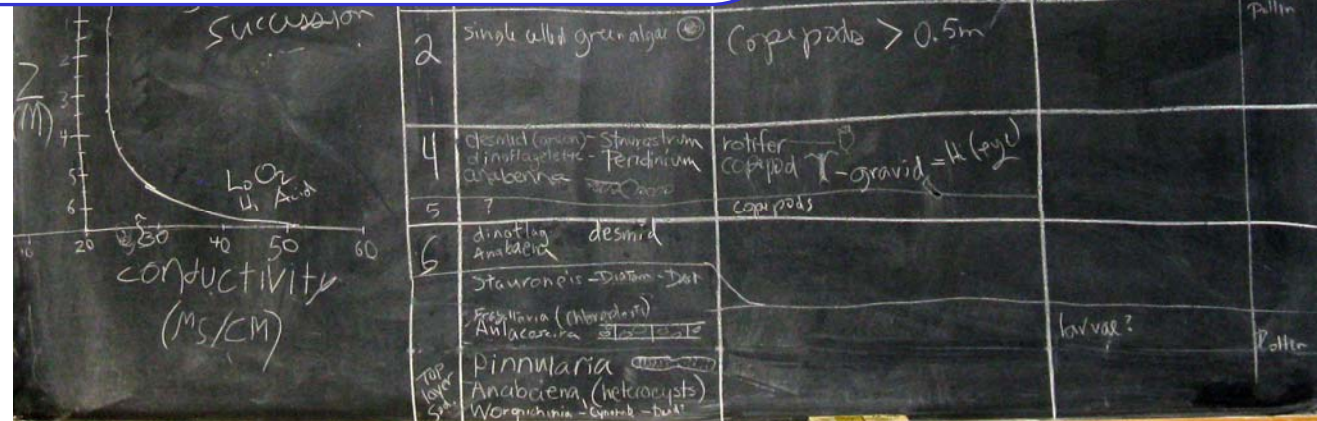 Succession
Z
(M)
2
3
4
5
6
Lo O2
Acid
20
30
40
50
60
conductivity
(MS/CM)
2
single celled green algae
Copepods > 0.5m
Pollen
4
desmid (green) - Staurastrum
dinoflagellate - Peridinium
anabenna
rotifer
copepod - gravid =
5
?
copepods
6
dinoflag desmid
Anabaena
Stauroneis - Diatom - Dead
(chloroplasts)
Aulacoseira
larvae?
Pollen
Top
layer
Sed.
Pinnularia
Anabaena (heterocysts)